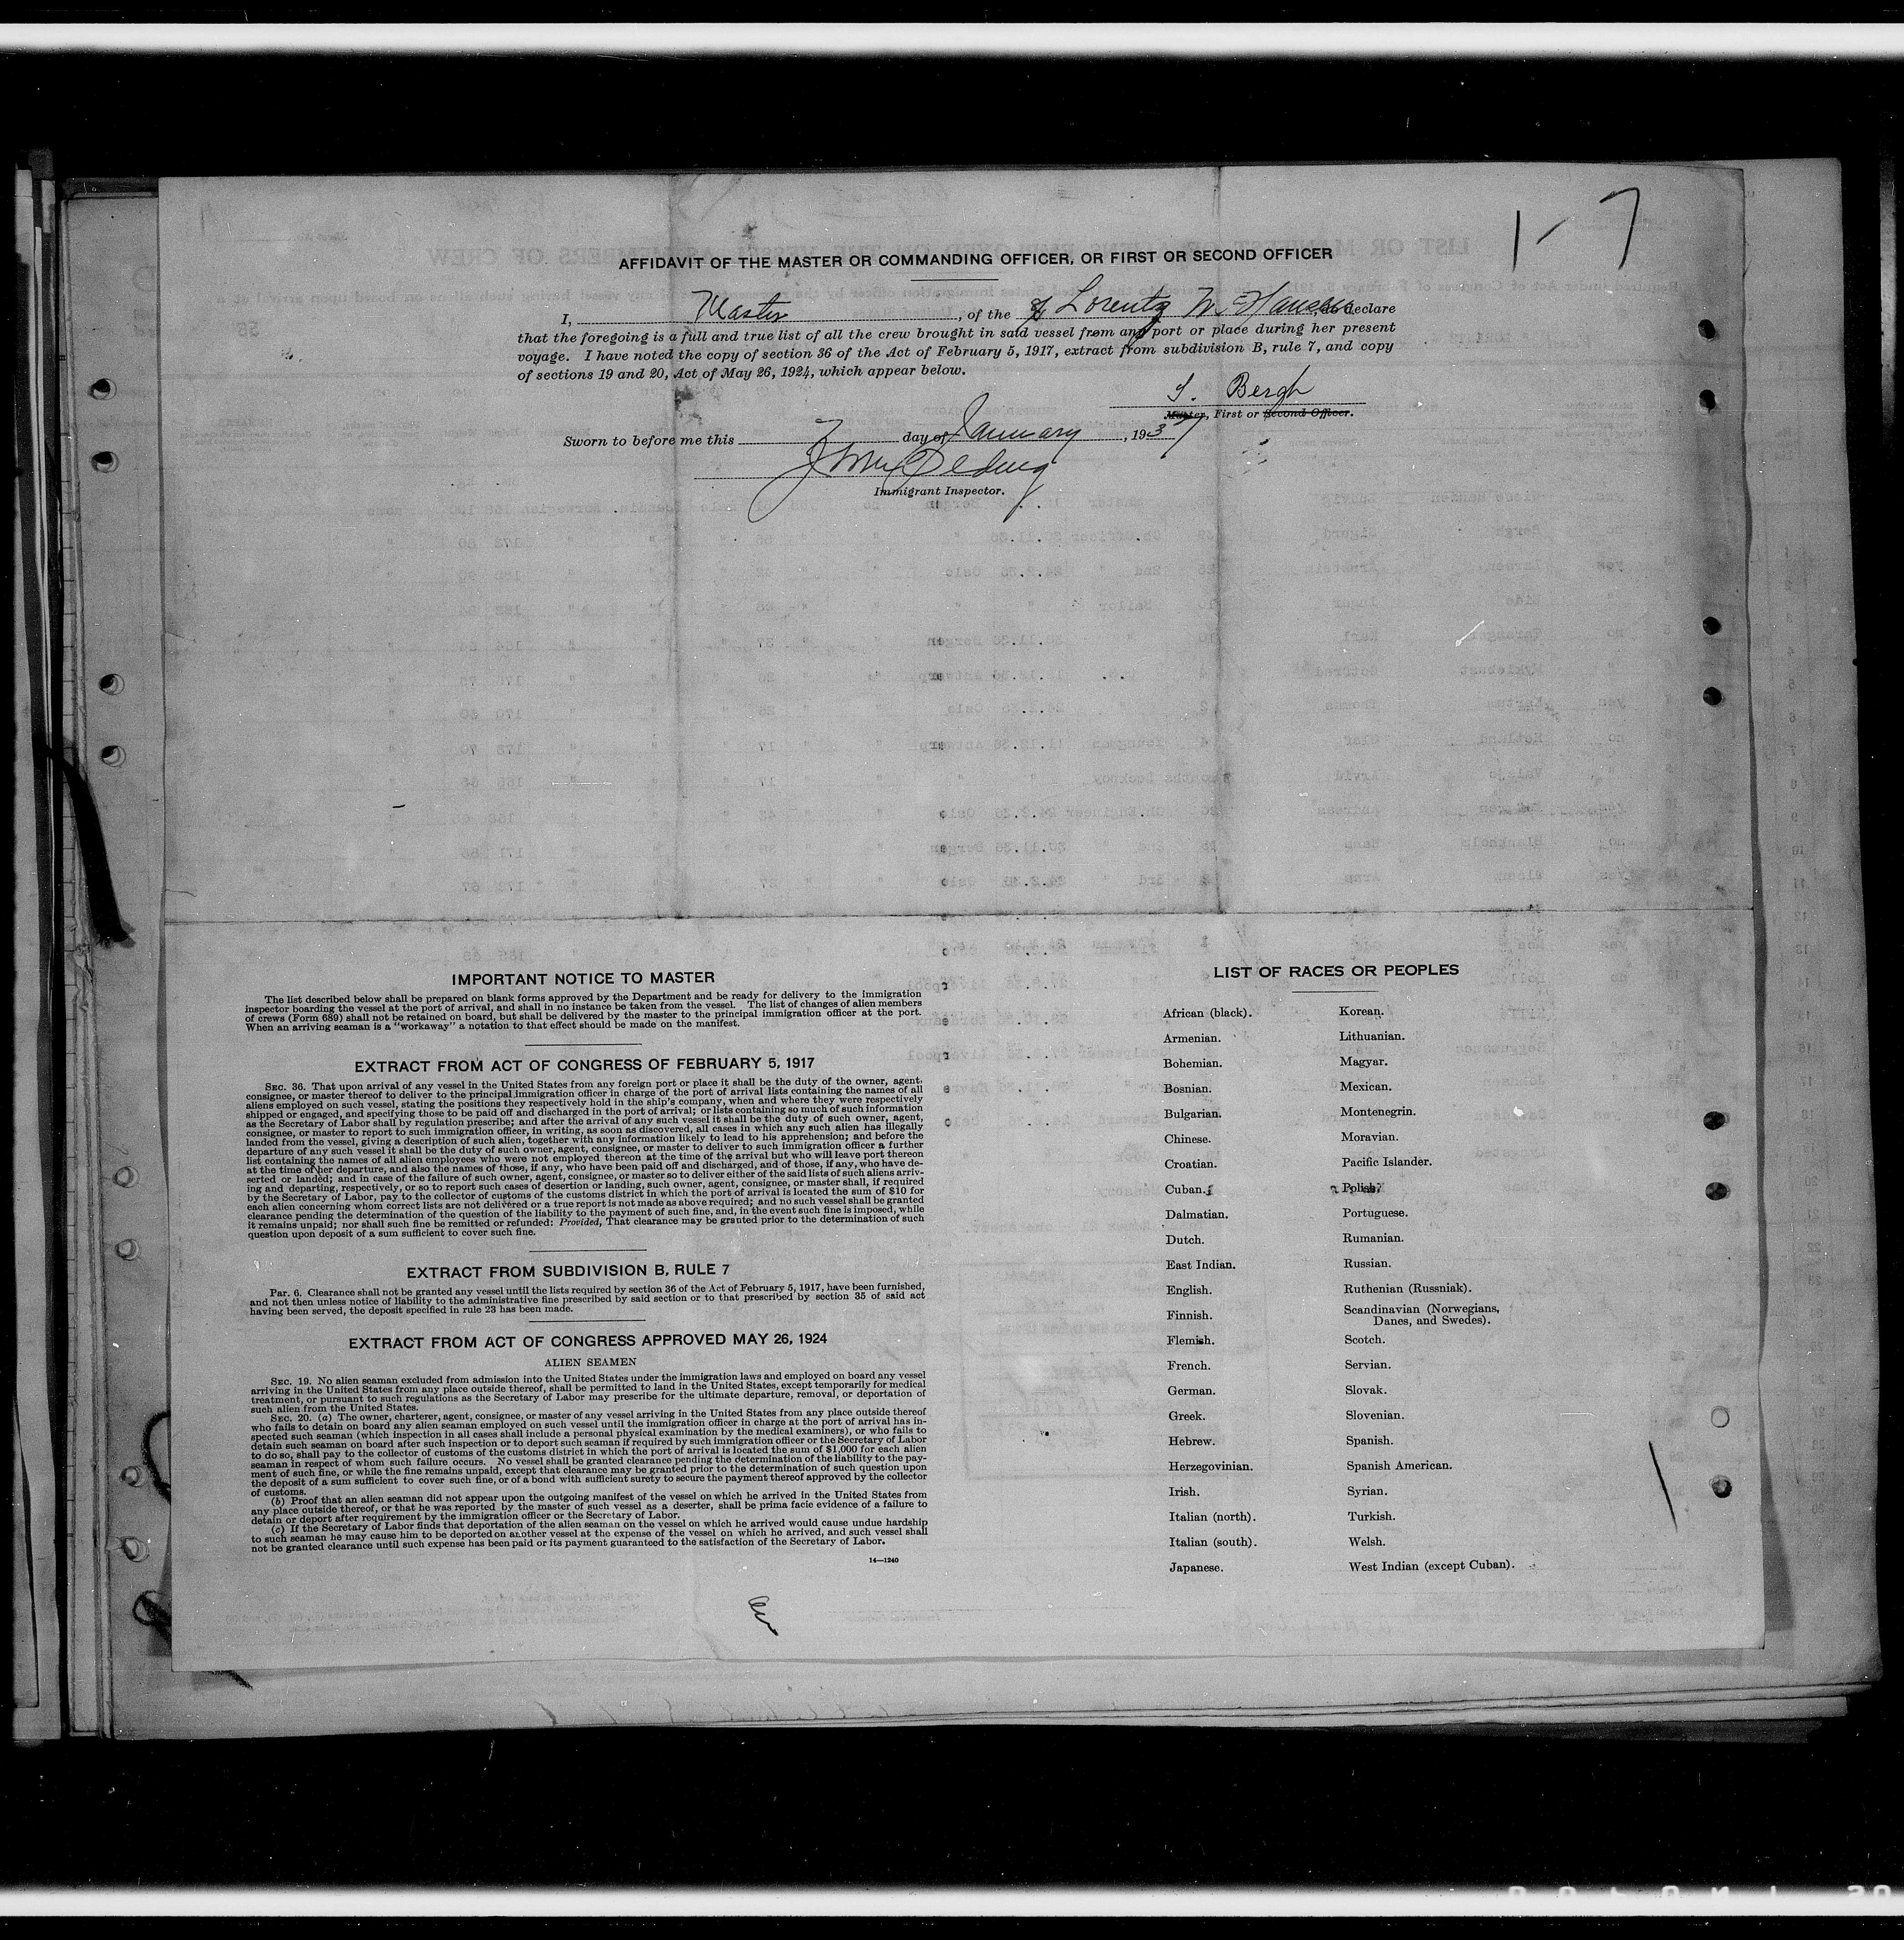 1-7
AFFIDAVIT OF THE MASTER OR COMMANDING OFFICER, OR FIRST OR SECOND OFFICER
I, Master, of the Lorentz W. Hansen, do declare
that the foregoing is a full and true list of all the crew brought in said vessel from any port or place during her present
voyage. I have noted the copy of section 36 of the Act of February 5, 1917, extract from subdivision B, rule 7, and copy
of sections 19 and 20, Act of May 26, 1924, which appear below.
S. Bergh
Master, First or Second Officer.
Sworn to before me this 7 day of January, 1937
Immigrant Inspector.
IMPORTANT NOTICE TO MASTER
The list described below shall be prepared on blank forms approved by the Department and be ready for delivery to the immigration
inspector boarding the vessel at the port of arrival, and shall in no instance be taken from the vessel. The list of changes of alien members
of crews (Form 689) shall not be retained on board, but shall be delivered by the master to the principal immigration officer at the port.
When an arriving seaman is a "workaway" a notation to that effect should be made on the manifest.
EXTRACT FROM ACT OF CONGRESS OF FEBRUARY 5, 1917
SEC. 36. That upon arrival of any vessel in the United States from any foreign port or place it shall be the duty of the owner, agent,
consignee, or master thereof to deliver to the principal immigration officer in charge of the port of arrival lists containing the names of all
aliens employed on such vessel, stating the positions they respectively hold in the ship's company, when and where they were respectively
shipped or engaged, and specifying those to be paid off and discharged in the port of arrival; or lists containing so much of such information
as the Secretary of Labor shall by regulation prescribe; and after the arrival of any such vessel it shall be the duty of such owner, agent,
consignee, or master to report to such immigration officer, in writing, as soon as discovered, all cases in which any such alien has illegally
landed from the vessel, giving a description of such alien, together with any information likely to lead to his apprehension; and before the
departure of any such vessel it shall be the duty of such owner, agent, consignee, or master to deliver to such immigration officer a further
list containing the names of all alien employees who were not employed thereon at the time of the arrival but who will leave port thereon
at the time of her departure, and also the names of those, if any, who have been paid off and discharged, and of those, if any, who have de-
serted or landed; and in case of the failure of such owner, agent, consignee, or master so to deliver either of the said lists of such aliens arriv-
ing and departing, respectively, or so to report such cases of desertion or landing, such owner, agent, consignee, or master shall, if required
by the Secretary of Labor, pay to the collector of customs of the customs district in which the port of arrival is located the sum of $10 for
each alien concerning whom correct lists are not delivered or a true report is not made as above required; and no such vessel shall be granted
clearance pending the determination of the question of the liability to the payment of such fine, and, in the event such fine is imposed, while
it remains unpaid; nor shall such fine be remitted or refunded: Provided, That clearance may be granted prior to the determination of such
question upon deposit of a sum sufficient to cover such fine.
EXTRACT FROM SUBDIVISION B, RULE 7
Par. 6. Clearance shall not be granted any vessel until the lists required by section 36 of the Act of February 5, 1917, have been furnished,
and not then unless notice of liability to the administrative fine prescribed by said section or to that prescribed by section 35 of said act
having been served, the deposit specified in rule 23 has been made.
EXTRACT FROM ACT OF CONGRESS APPROVED MAY 26, 1924
ALIEN SEAMEN
SEC. 19. No alien seaman excluded from admission into the United States under the immigration laws and employed on board any vessel
arriving in the United States from any place outside thereof, shall be permitted to land in the United States, except temporarily for medical
treatment, or pursuant to such regulations as the Secretary of Labor may prescribe for the ultimate departure, removal, or deportation of
such alien from the United States.
SEC. 20. (a) The owner, charterer, agent, consignee, or master of any vessel arriving in the United States from any place outside thereof
who fails to detain on board any alien seaman employed on such vessel until the immigration officer in charge at the port of arrival has in-
spected such seaman (which inspection in all cases shall include a personal physical examination by the medical examiners), or who fails to
detain such seaman on board after such inspection or to deport such seaman if required by such immigration officer or the Secretary of Labor
to do so, shall pay to the collector of customs of the customs district in which the port of arrival is located the sum of $1,000 for each alien
seaman in respect of whom such failure occurs. No vessel shall be granted clearance pending the determination of the liability to the pay-
ment of such fine, or while the fine remains unpaid, except that clearance may be granted prior to the determination of such question upon
the deposit of a sum sufficient to cover such fine, or of a bond with sufficient surety to secure the payment thereof approved by the collector
of customs.
(b) Proof that an alien seaman did not appear upon the outgoing manifest of the vessel on which he arrived in the United States from
any place outside thereof, or that he was reported by the master of such vessel as a deserter, shall be prima facie evidence of a failure to
detain or deport after requirement by the immigration officer or the Secretary of Labor.
(c) If the Secretary of Labor finds that deportation of the alien seaman on the vessel on which he arrived would cause undue hardship
to such seaman he may cause him to be deported on another vessel at the expense of the vessel on which he arrived, and such vessel shall
not be granted clearance until such expense has been paid or its payment guaranteed to the satisfaction of the Secretary of Labor.
14—1240
LIST OF RACES OR PEOPLES
African (black).
Armenian.
Bohemian.
Bosnian.
Bulgarian.
Chinese.
Croatian.
Cuban.
Dalmatian.
Dutch.
East Indian.
English.
Finnish.
Flemish.
French.
German.
Greek.
Hebrew.
Herzegovinian.
Irish.
Italian (north).
Italian (south).
Japanese.
Korean.
Lithuanian.
Magyar.
Mexican.
Montenegrin.
Moravian.
Pacific Islander.
Polish.
Portuguese.
Rumanian.
Russian.
Ruthenian (Russniak).
Scandinavian (Norwegians,
Danes, and Swedes).
Scotch.
Servian.
Slovak.
Slovenian.
Spanish.
Spanish American.
Syrian.
Turkish.
Welsh.
West Indian (except Cuban).